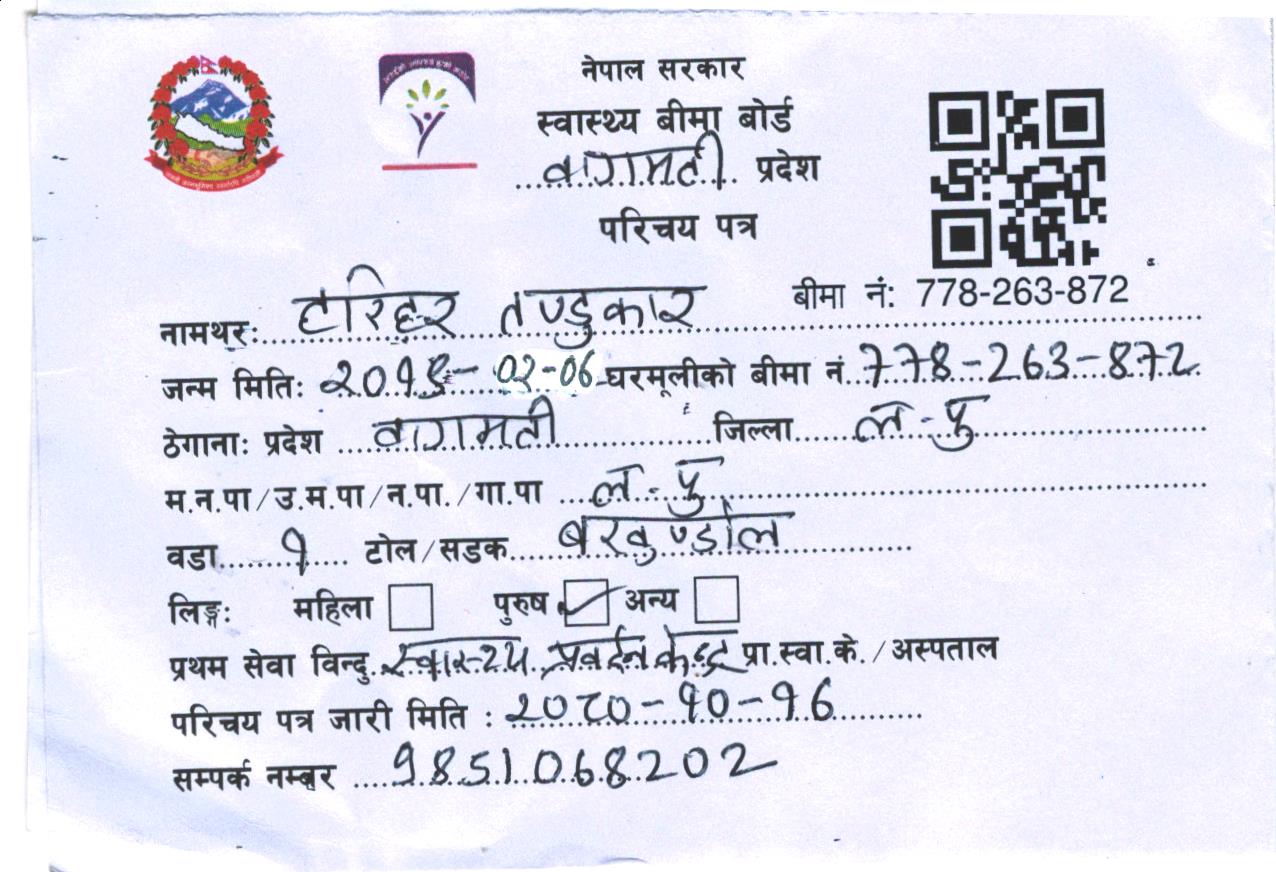 नेपाल सरकार
स्वास्थ्य बीमा बोर्ड
वागमती प्रदेश
परिचय पत्र
बीमा नं: 778-263-872
नामथर: हरिहर तण्डुकार
जन्म मिति: घरमूलीको बीमा नं. 778-263-872
ठेगाना: प्रदेश वागमती जिल्ला ल.पु
म.न.पा/उ.म.पा/न.पा./गा.पा ल.पु
वडा १ टोल/सडक बखुण्डोल
लिङ्ग: महिला पुरुष अन्य
प्रथम सेवा विन्दु स्वास्थ्य प्रवर्द्धन केन्द्र प्रा.स्वा.के./अस्पताल
परिचय पत्र जारी मिति : २०८०-१०-१६
सम्पर्क नम्बर 9851068202